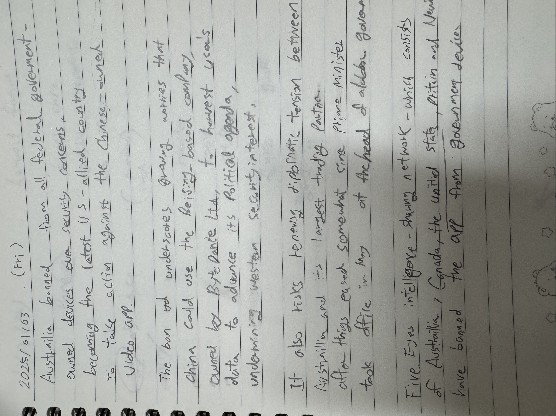 2025/01/03 (Fri)
Australia banned from all federal government-
owned devices over security concerns-
becoming the latest U.S-allied country
to take action against the Chinese-owned
video app
The ban underscores growing worries that
China could use the Beijing based company,
owned by ByteDance Ltd, to harvest user's
data to advance its political agenda,
undermining western security interest.
It also risks renewing diplomatic tension between
Australia and its largest trading Partner
after things eased somewhat since Prime Minister
took office in May at the head of a labor
Five Eyes intelligence-sharing network - which consists
of Australia, Canada, the united state, Britain and New
have banned the app from government devices